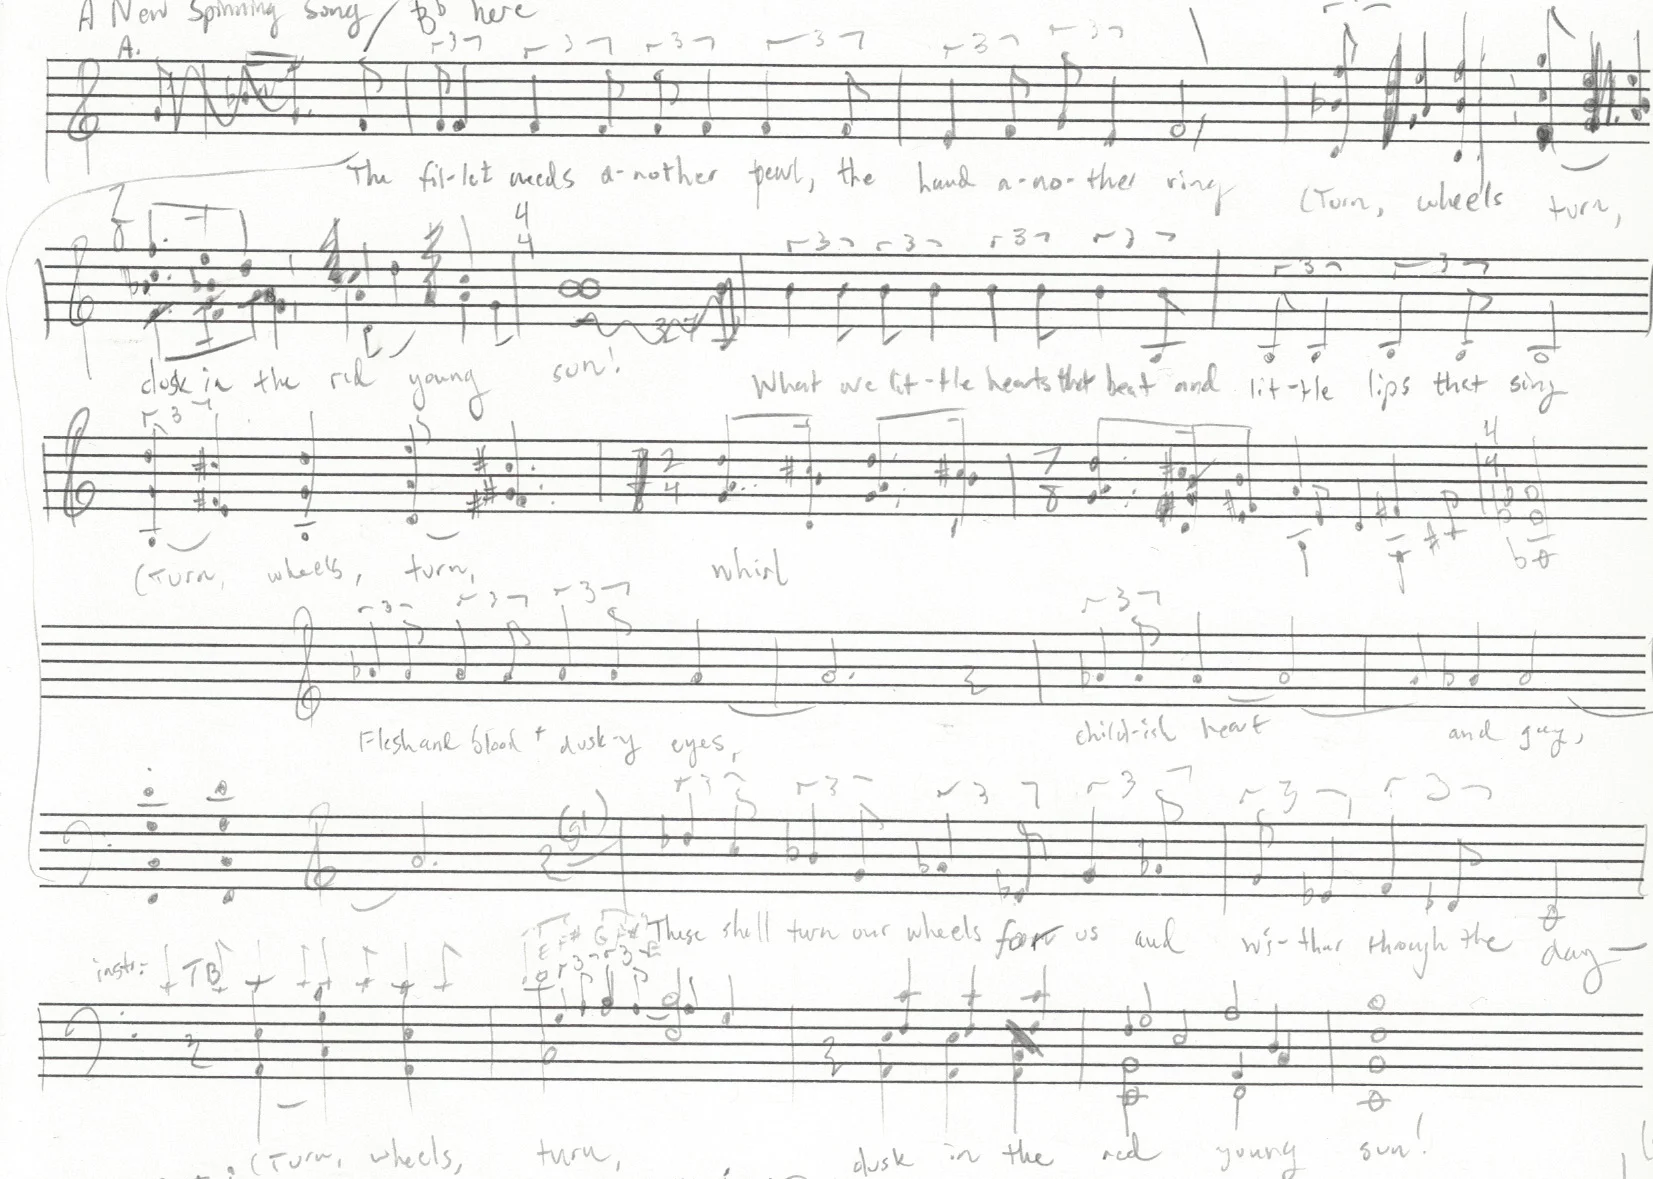 A New Spinning Song / Bb here
A.
3 3 3 3 3 3
The fil-let needs a-nother pearl, the hand a-no-ther ring (Turn, wheels turn,
7 8 4 4
3 3 3 3 3 3
dusk in the red young sun! What are lit-tle hearts that beat and lit-tle lips that sing
3 2 4 7 8 4 4
(Turn, wheels, turn, whirl
3 3 3 3
Flesh and blood + dusk-y eyes, child-ish heart and gay,
3 3 3 3 3 3
These shall turn our wheels for us and wi-ther through the day
instr: TB E F# G F# E
3 3
(Turn, wheels, turn, dusk in the red young sun!